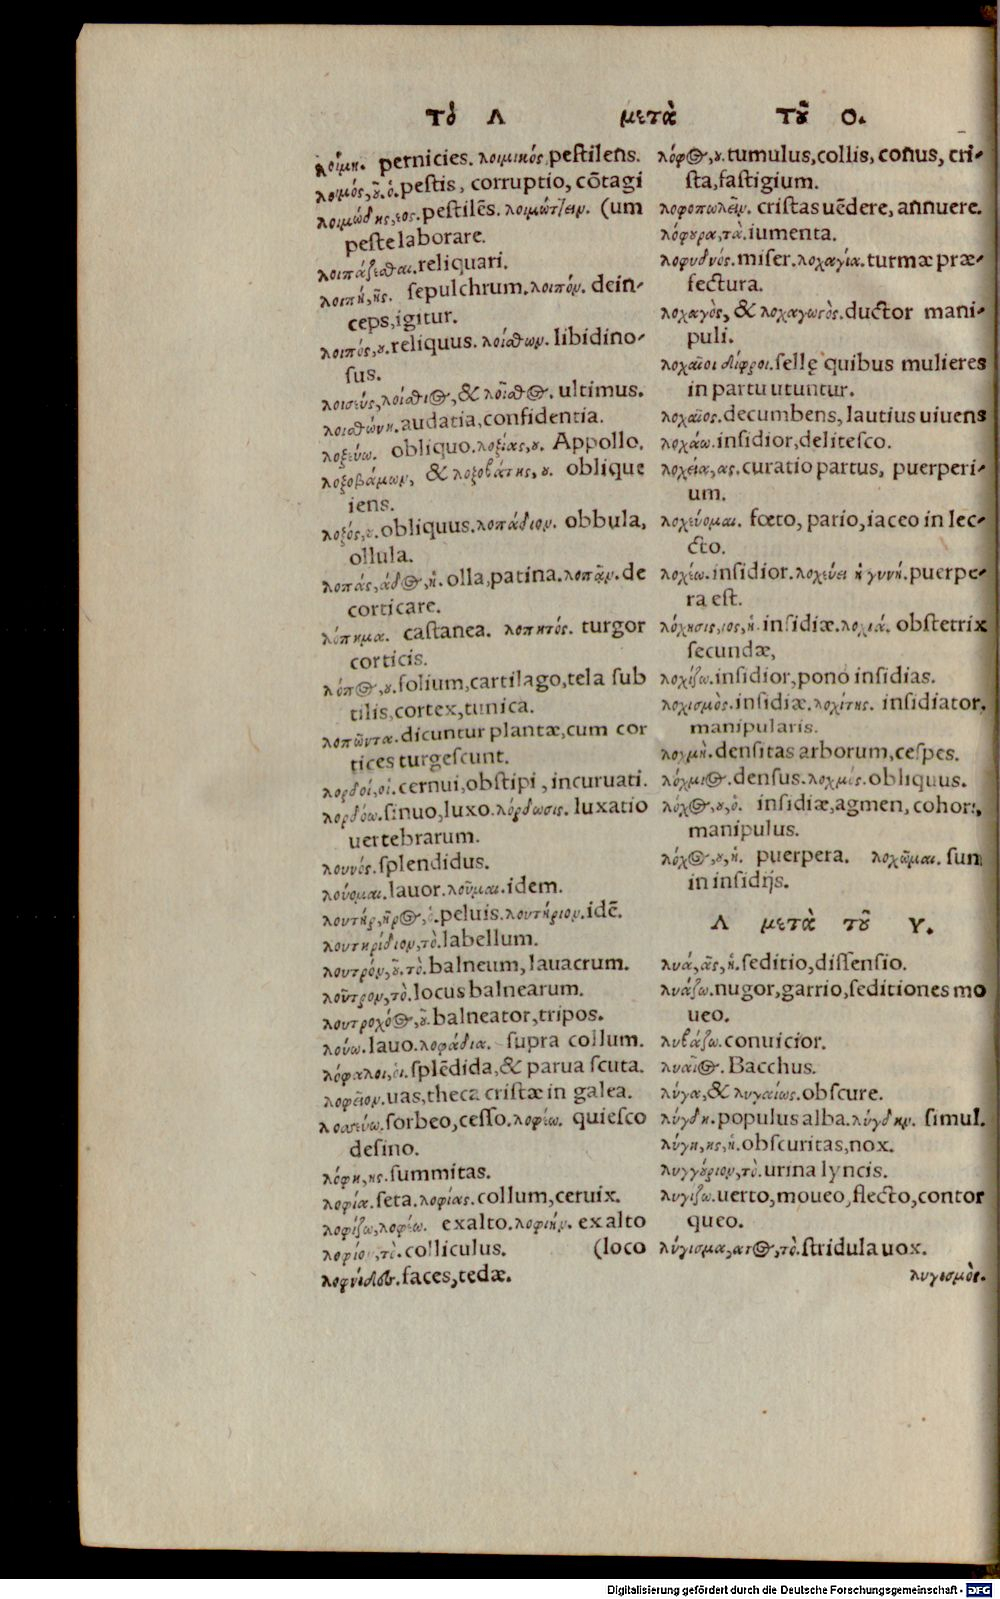 Τὸ Λ μετὰ τοῦ Ο.
λοίμη. pernicies. λοιμικός, pestilens.
λοιμός, οῦ. ὁ. pestis, corruptio, cōtagi
λοιμώδης, εος. pestilēs. λοιμώττειν. (um
peste laborare.
λοιπάζεσθαι. reliquari.
λοιπή, ῆς. sepulchrum. λοιπόν. dein-
ceps, igitur.
λοιπός, ου. reliquus. λοίσθων. libidino-
sus.
λοισεύς, λοίσθιος, & λοῖσθος. ultimus.
λοισθώνη. audatia, confidentia.
λοξεύω. obliquo. λοξίας, ου. Appollo.
λοξοβάμων, & λοξοβάτης, ου. oblique
iens.
λοξός, ου. obliquus. λοπάδιον. obbula,
ollula.
λοπάς, άδος, ἡ. olla, patina. λοπᾶν. de
corticare.
λόπημα. castanea. λοπητός. turgor
corticis.
λόπος, ου. folium, cartilago, tela sub
tilis, cortex, tunica.
λοπῶντα. dicuntur plantæ, cum cor
tices turgescunt.
λορδοί, οἱ. cernui, obstipi, incuruati.
λορδόω. sinuo, luxo. λόρδωσις. luxatio
uertebrarum.
λουνός. splendidus.
λούομαι. lauor. λοῦμαι. idem.
λουτήρ, ῆρος, ὁ. peluis. λουτήριον. idē.
λουτηρίδιον, τὸ. labellum.
λουτρόν, οῦ. τὸ. balneum, lauacrum.
λοῦτρον, τὸ. locus balnearum.
λουτροχόος, οῦ. balneator, tripos.
λούω. lauo. λοφάδια. supra collum.
λόφαλοι, οἱ. splēdida, & parua scuta.
λοφεῖον. uas, theca cristæ in galea.
sorbeo, cesso. λοφέω. quiesco
desino.
λόφη, ης. summitas.
λοφία. seta. λοφίας. collum, ceruix.
λοφίζω, λοφέω. exalto. λοφιήν. exalto
τὸ. colliculus. (loco
λοφνίδες. faces, tedæ.
λόφος, ου. tumulus, collis, conus, cri-
sta, fastigium.
λοφοπωλεῖν. cristas uēdere, annuere.
λόφουρα, τὰ. iumenta.
λοφυδνός. miser. λοχαγία. turmæ præ-
fectura.
λοχαγὸς, & λοχαγωγὸς. ductor mani-
puli.
λοχαῖοι δίφροι. sellę quibus mulieres
in partu utuntur.
λοχαῖος. decumbens, lautius uiuens
λοχάω. insidior, delitesco.
λοχεία, ας. curatio partus, puerperi-
um.
λοχεύομαι. fœto, pario, iaceo in lec-
cto.
λοχέω. insidior. λοχεύει ἡ γυνή. puerpe-
ra est.
λόχησις, ιος, ἡ. insidiæ. λοχιά. obstetrix
secundæ,
λοχίζω. insidior, pono insidias.
λοχισμὸς. insidiæ. λοχίτης. insidiator,
manipularis.
λοχμὴ. densitas arborum, cespes.
λόχμιος. densus. λοχμός. obliquus.
λόχος, ου, ὁ. insidiæ, agmen, cohors,
manipulus.
λόχος, ου, ἡ. puerpera. λοχῶμαι. sum
in insidijs.
Λ μετὰ τοῦ Υ.
λυά, ᾶς, ἡ. seditio, dissensio.
λυάζω. nugor, garrio, seditiones mo
ueo.
λυβάζω. conuicior.
λυαῖος. Bacchus.
λύγα, & λυγαίως. obscure.
λύγδη. populus alba. λύγδην. simul.
λύγη, ης, ἡ. obscuritas, nox.
λυγγούριον, τὸ. urina lyncis.
λυγίζω. uerto, moueo, flecto, contor
queo.
λύγισμα, ατος, τὸ. stridula uox.
λυγισμὸς.
Digitalisierung gefördert durch die Deutsche Forschungsgemeinschaft - DFG